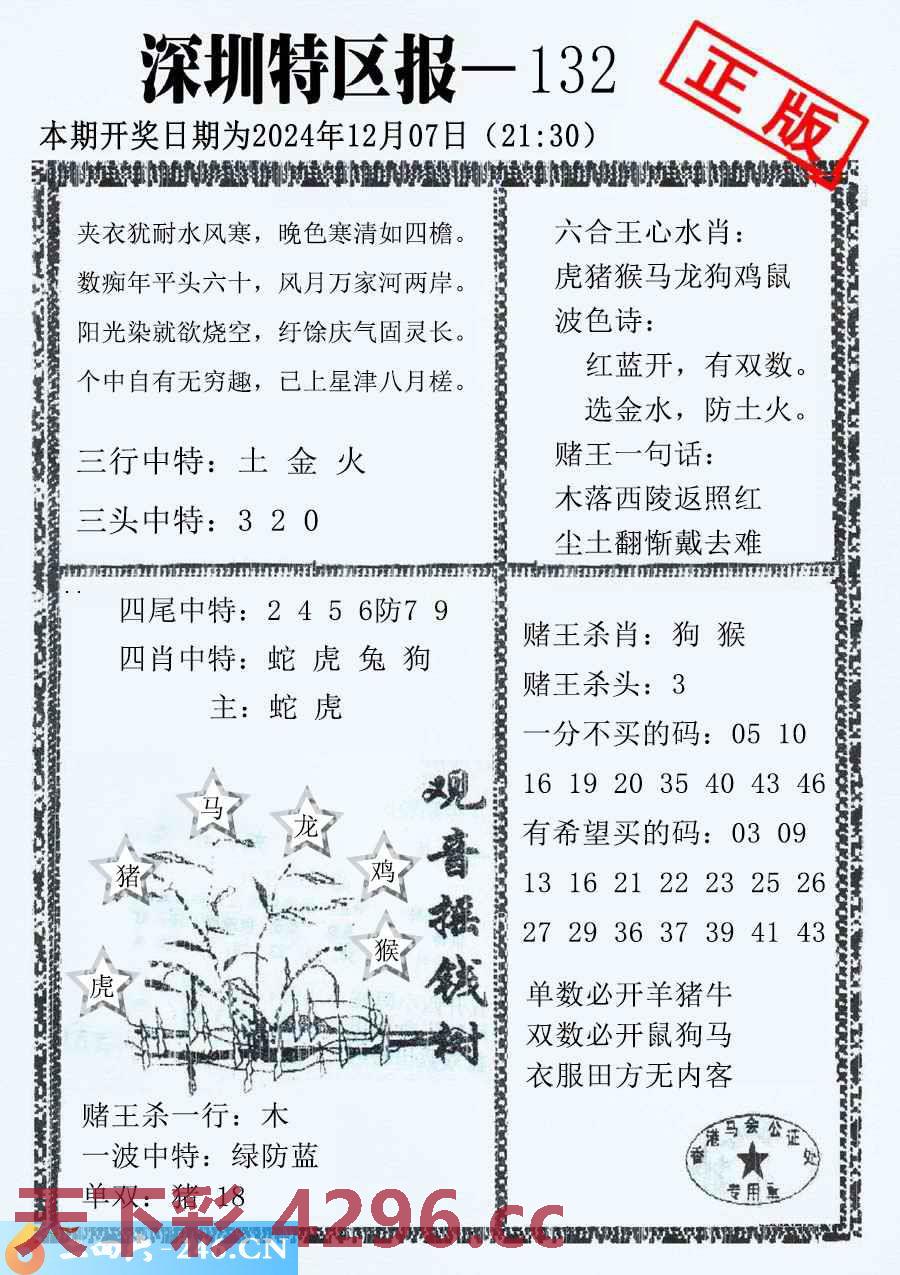 深圳特区报—132
正版
本期开奖日期为2024年12月07日（21:30）
夹衣犹耐水风寒，晚色寒清如四檐。
数痴年平头六十，风月万家河两岸。
阳光染就欲烧空，纡馀庆气固灵长。
个中自有无穷趣，已上星津八月槎。
三行中特：土 金 火
三头中特：3 2 0
六合王心水肖：
虎猪猴马龙狗鸡鼠
波色诗：
红蓝开，有双数。
选金水，防土火。
赌王一句话：
木落西陵返照红
尘土翻惭戴去难
四尾中特：2 4 5 6防7 9
四肖中特：蛇 虎 兔 狗
主：蛇 虎
马
龙
猪
鸡
猴
虎
观音摇钱树
赌王杀一行：木
一波中特：绿防蓝
单双：猪 18
赌王杀肖：狗 猴
赌王杀头：3
一分不买的码：05 10
16 19 20 35 40 43 46
有希望买的码：03 09
13 16 21 22 23 25 26
27 29 36 37 39 41 43
单数必开羊猪牛
双数必开鼠狗马
衣服田方无内客
香港马会公证处
专用章
天下彩 4296.cc